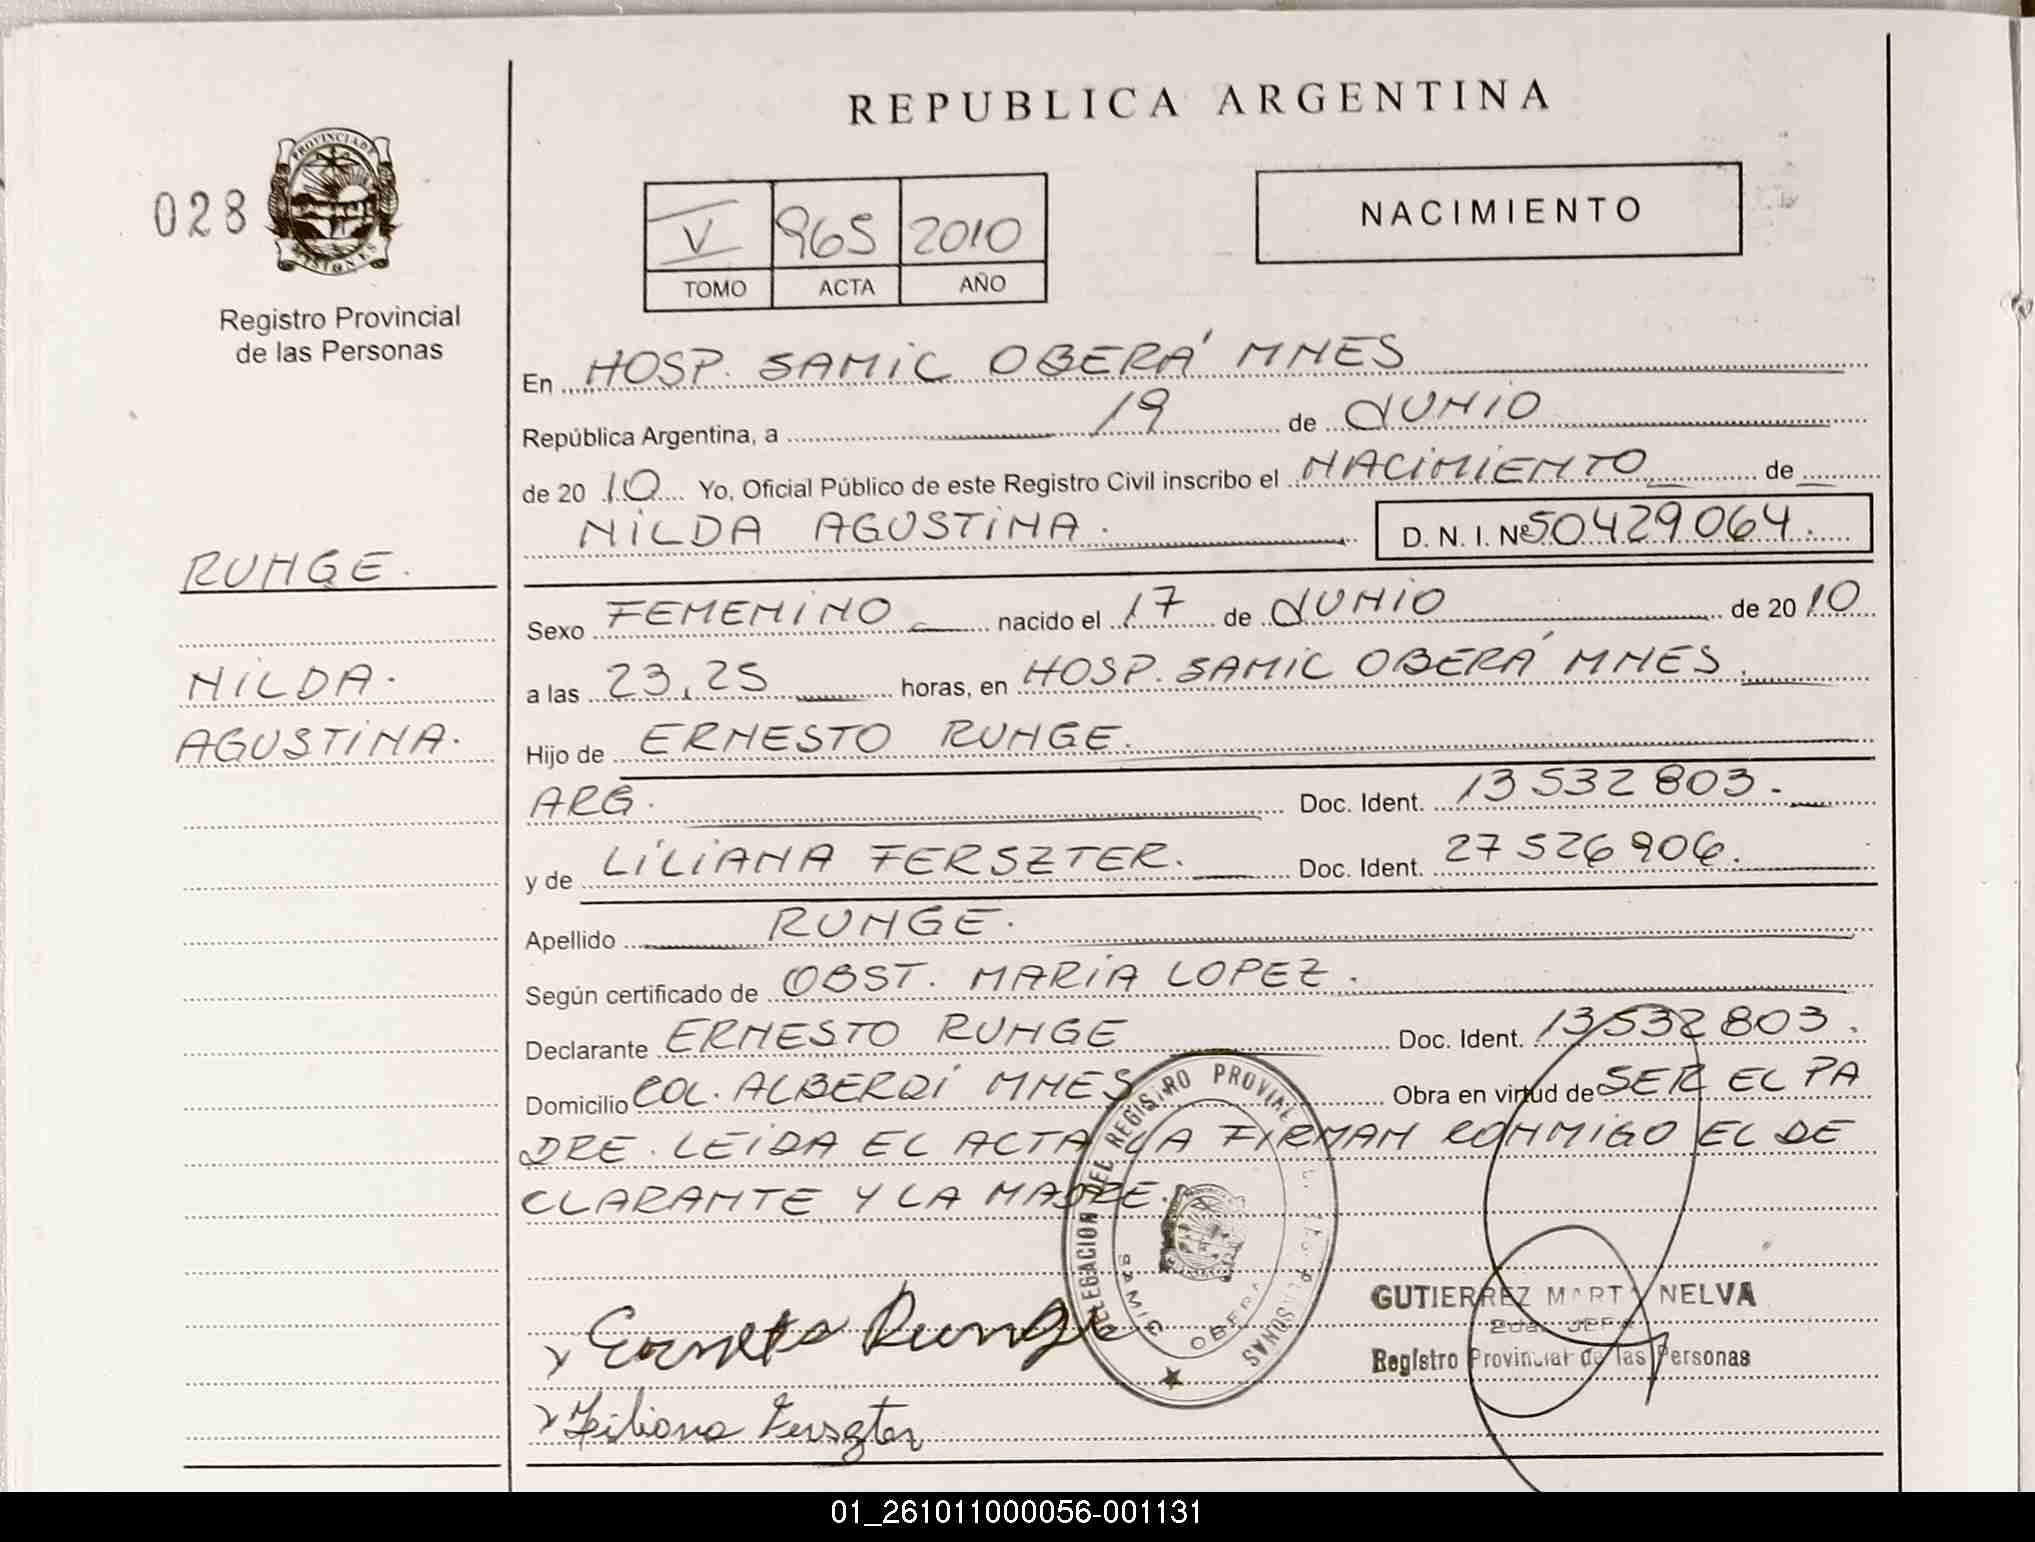 REPUBLICA ARGENTINA
028
PROVINCIA DE
MISIONES
Registro Provincial
de las Personas
V 965 2010
TOMO ACTA AÑO
NACIMIENTO
En HOSP. SAMIC OBERÁ MNES
República Argentina, a 19 de JUNIO
de 2010 Yo, Oficial Público de este Registro Civil inscribo el NACIMIENTO de
NILDA AGUSTINA. D. N. I. Nº 50429064.
RUNGE.
Sexo FEMENINO nacido el 17 de JUNIO de 2010
NILDA.
a las 23,25 horas, en HOSP. SAMIC OBERÁ MNES.
AGUSTINA.
Hijo de ERNESTO RUNGE.
ARG. Doc. Ident. 13532803.
y de LILIANA FERSZTER. Doc. Ident. 27526906.
Apellido RUNGE.
Según certificado de OBST. MARIA LOPEZ.
Declarante ERNESTO RUNGE Doc. Ident. 13532803.
Domicilio COL. ALBERDI MNES Obra en virtud de SER EL PA
DRE. LEIDA EL ACTA LA FIRMAN CONMIGO EL DE
CLARANTE Y LA MADRE.
DELEGACION DEL REGISTRO PROVINCIAL DE LAS PERSONAS
SAMIC OBERA
Ernesto Runge
Liliana Ferszter
GUTIERREZ MARTA NELVA
2da. JEFA
Registro Provincial de las Personas
01_261011000056-001131